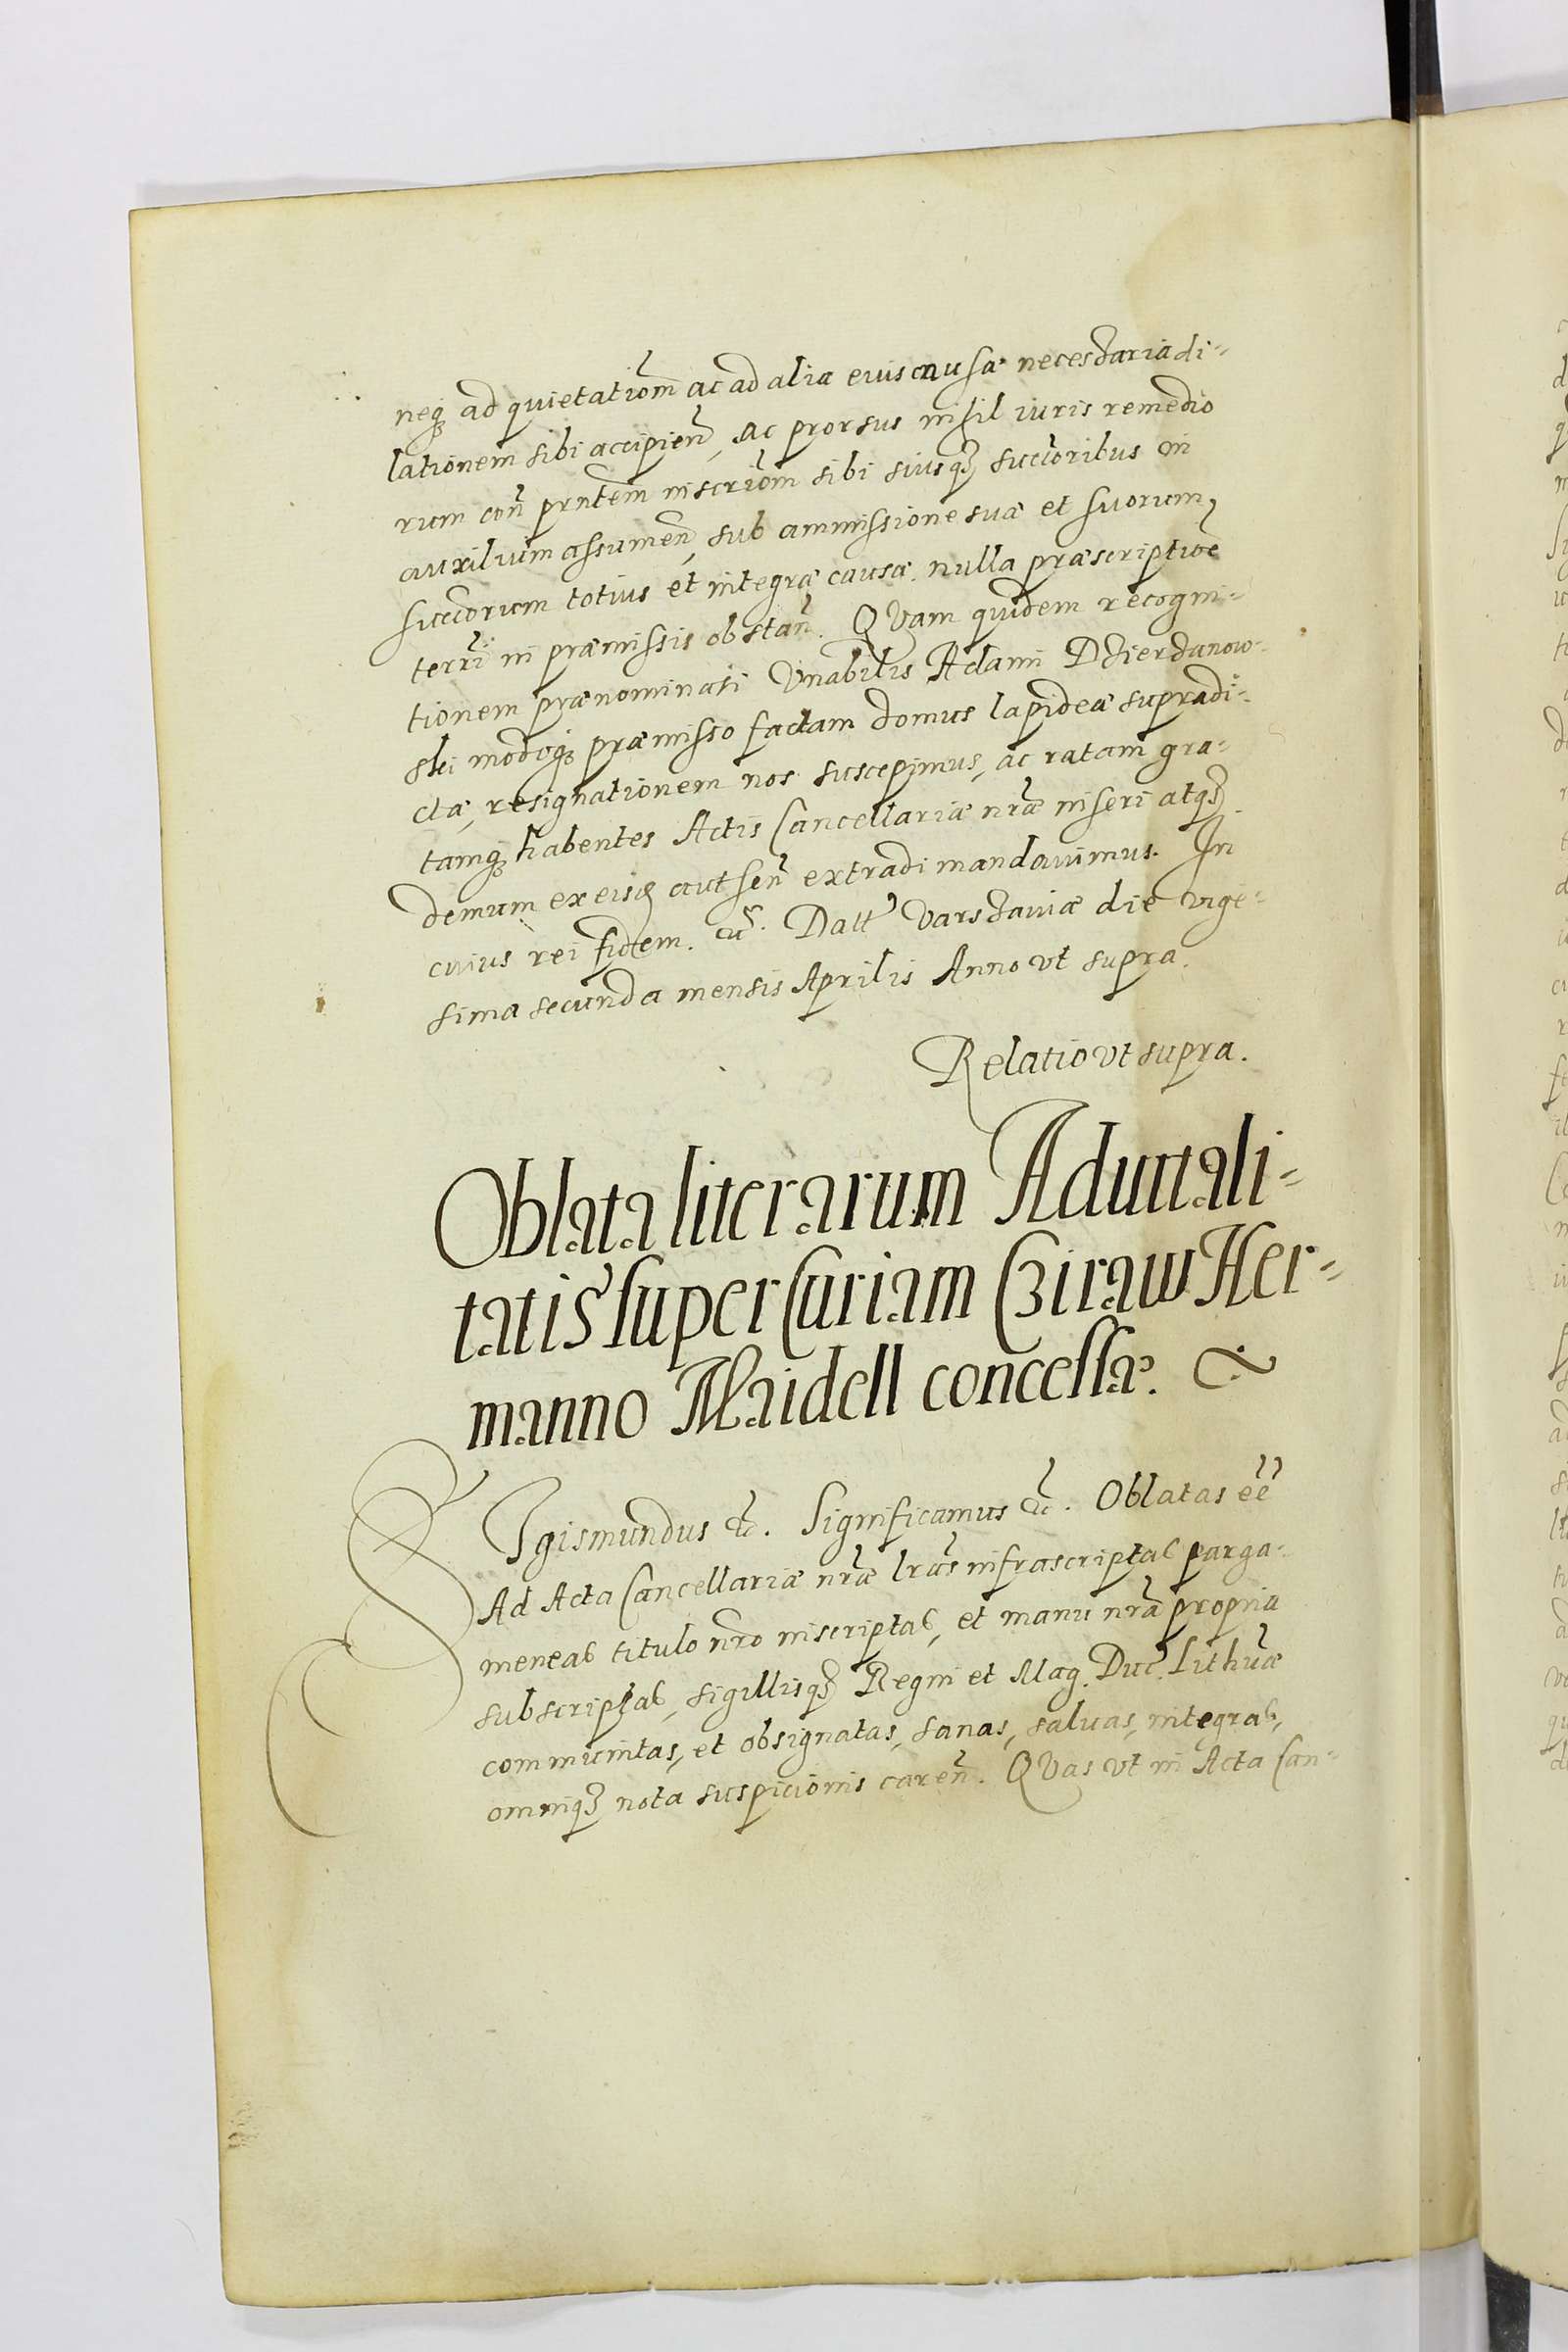 neq₃ ad quietatiom̃ ac ad alia eius cau sæ necessaria di-
lationem sibi accipien̄, ac prorsus nihil iuris remedio
rum con̄ prntem̄ inscriom̄ sibi suisq₃ succoribus in
auxilium assumen̄, sub ammissione suæ et suorum
succorum totius et integræ causæ. nulla præscriptioē
terri in præmissis obstan̄. QVam quidem recogni-
tionem prænominati Vnabilis Adami Dzierzanow-
ski modoq₃ præmisso factam domus lapideæ supradi-
ctæ, resignationem nos suscepimus, ac ratam gra-
tamq₃ habentes Actis Cancellariæ nr̃æ inseri atq₃
demum ex eisd autsen̄ extradi mandauimus. In
cuius rei fidem. &c. Datt Varssauiæ die vige-
sima secunda mensis Aprilis Anno vt supra.
Relatio vt supra.
Oblata literarum Aduitali-
tatis super Curiam Cziraw Her-
manno Maidell concessæ.
SIgismundus &c. Significamus &c. Oblatas ee͂
Ad Acta Cancellariæ nr̃æ lr̃as infrascriptas parga-
meneas titulo nr̃o inscriptas, et manu nr̃a propria
subscriptas, sigillisq₃ Regni et Mag. Duc. Lithuæ
communitas, et obsignatas, sanas, saluas, integras,
omniq₃ nota suspicionis caren̄. QVas vt in Acta Can-